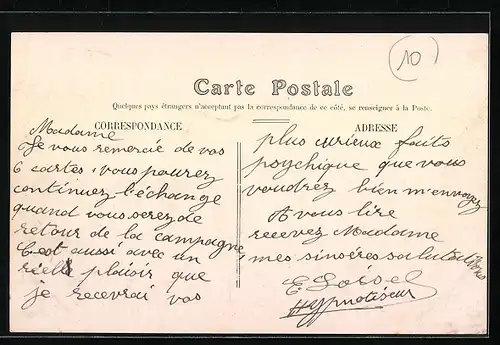 10
Carte Postale
Quelques pays étrangers n'acceptant pas la correspondance de ce côté, se renseigner à la Poste.
CORRESPONDANCE
Madame
Je vous remercie de vos
6 cartes, vous pourez
continuez l'échange
quand vous serez de
retour de la campagne,
C'est aussi avec un
réelle plaisir que
je recevrai vos
ADRESSE
plus curieux faits
psychique que vous
voudrez bien m'envoyez
A vous lire
recevez Madame
mes sincères salutations
E Loisel
Hypnotiseur